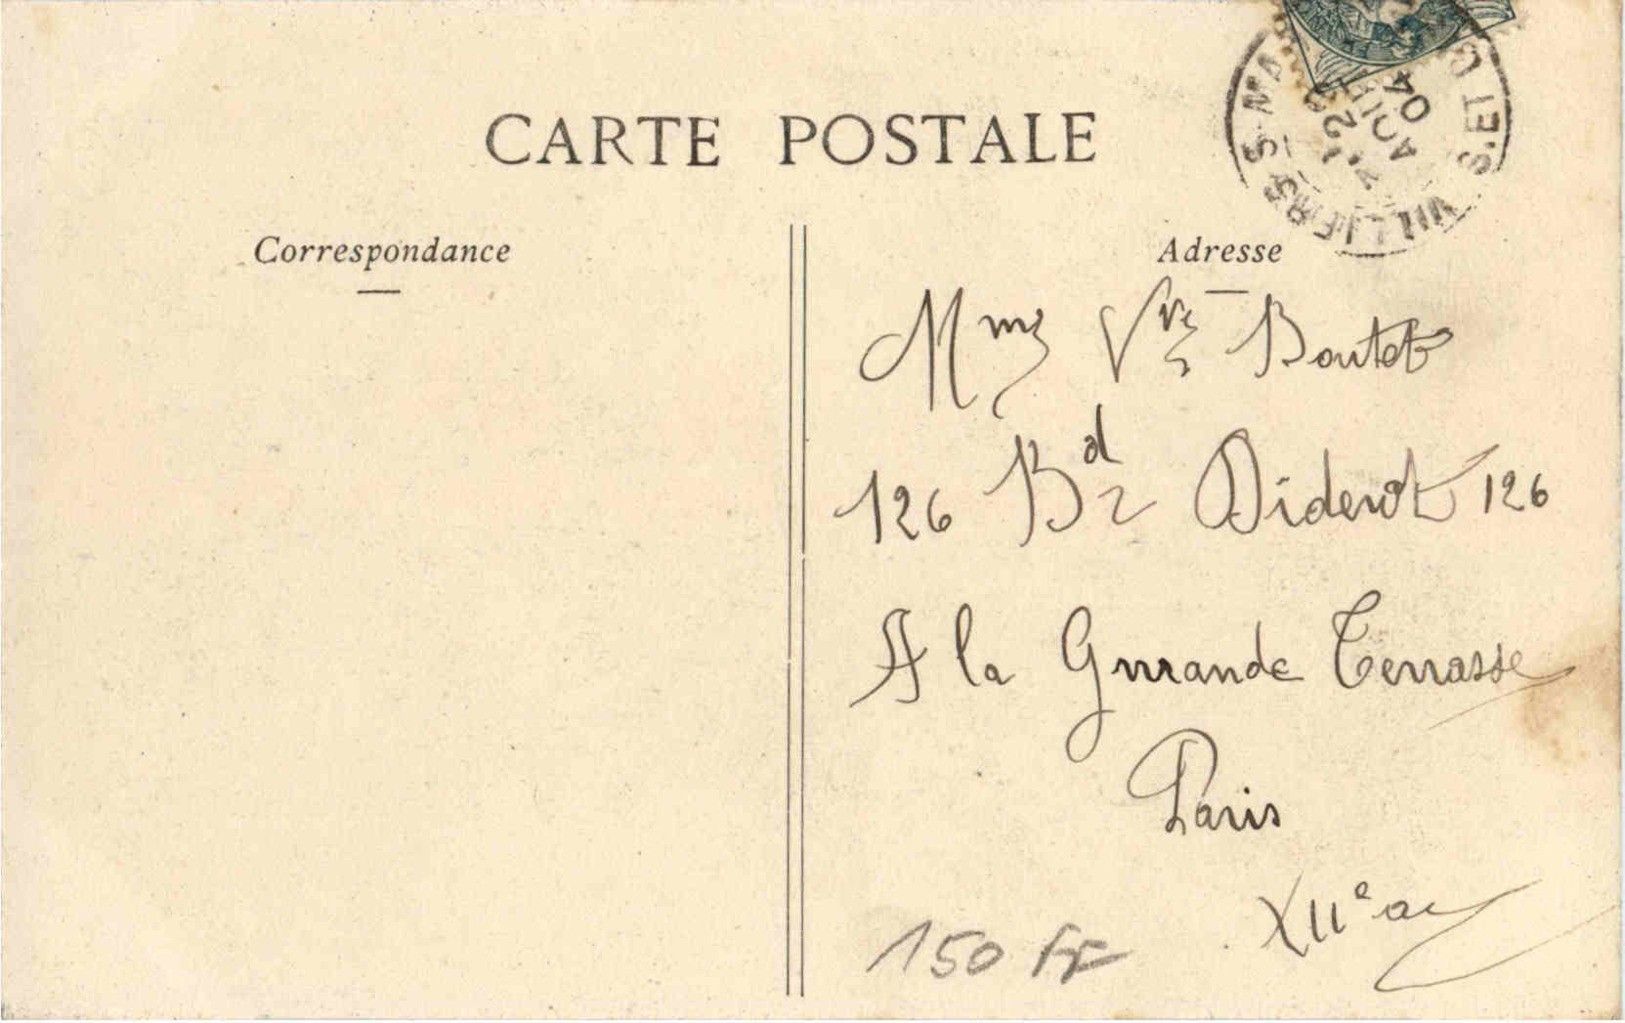 CARTE POSTALE
Correspondance
Adresse
VILLIERS-S-MA
S-ET-O
12
AOUT
04
Mme Vve Boutet
126 Bd Diderot 126
A la Grrande Terrasse
Paris
XIIe ar
150 FF